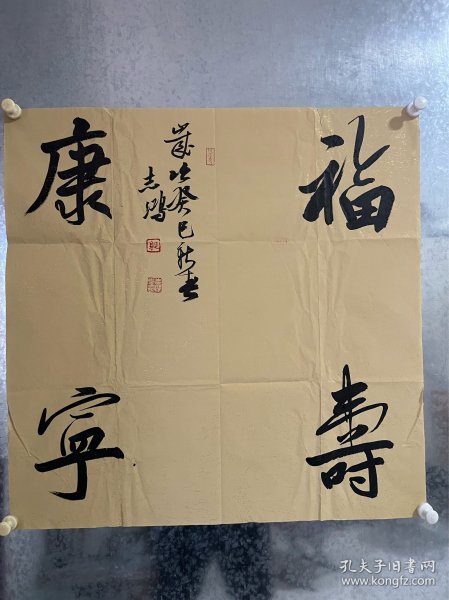 福寿
康宁
岁次癸巳新春
志鹏
孔夫子旧书网
www.kongfz.com